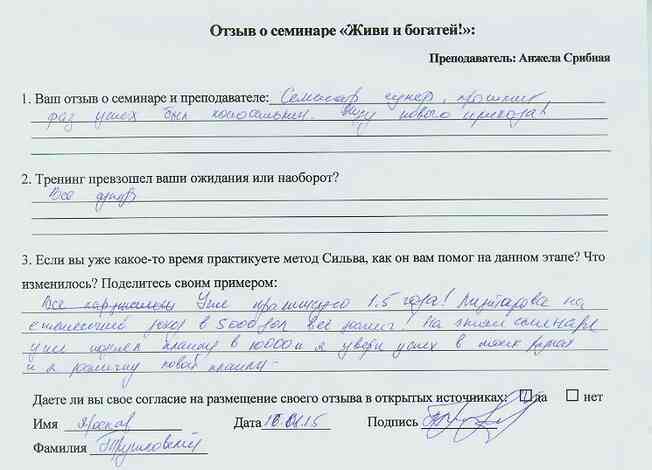 Отзыв о семинаре «Живи и богатей!»:
Преподаватель: Анжела Срибная
1. Ваш отзыв о семинаре и преподавателе: Семинар супер, прошлый
раз успех был колосальный. Жду нового прихода!
2. Тренинг превзошел ваши ожидания или наоборот?
Все супер
3. Если вы уже какое-то время практикуете метод Сильва, как он вам помог на данном этапе? Что
изменилось? Поделитесь своим примером:
Все Уже практикую 1.5 года! на
доход в 5000 дол все! На этом семинаре
уже планку в 10000 и я успех в моих руках
и я новой планку
Даете ли вы свое согласие на размещение своего отзыва в открытых источниках: да нет
Имя Дата Подпись
Фамилия